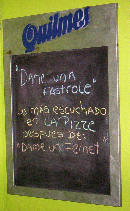 Quilmes
"DAME UNA
PASTROLE"
LO MAS ESCUCHADO
EN LA PIZZE
DESPUES DEL
"DAME UN FERNET"